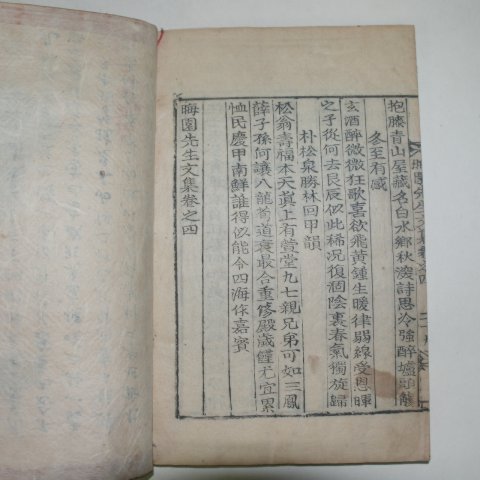 抱膝青山屋藏名白水鄉秋深詩思冷強醉壚頭觴
冬至有感
玄酒醉微微狂歌喜欲飛黃鍾生暖律弱線受恩暉
之子從何去良辰似此稀況復涸陰裏春氣獨旋歸
朴松泉勝林回甲韻
松翁壽福本天眞上有萱堂九七親兄弟可如三鳳
薛子孫何讓八龍荀道衰最合重修殿歲饉尤宜累
恤民慶甲南鮮誰得似能令四海作嘉賓
晦園先生文集卷之四